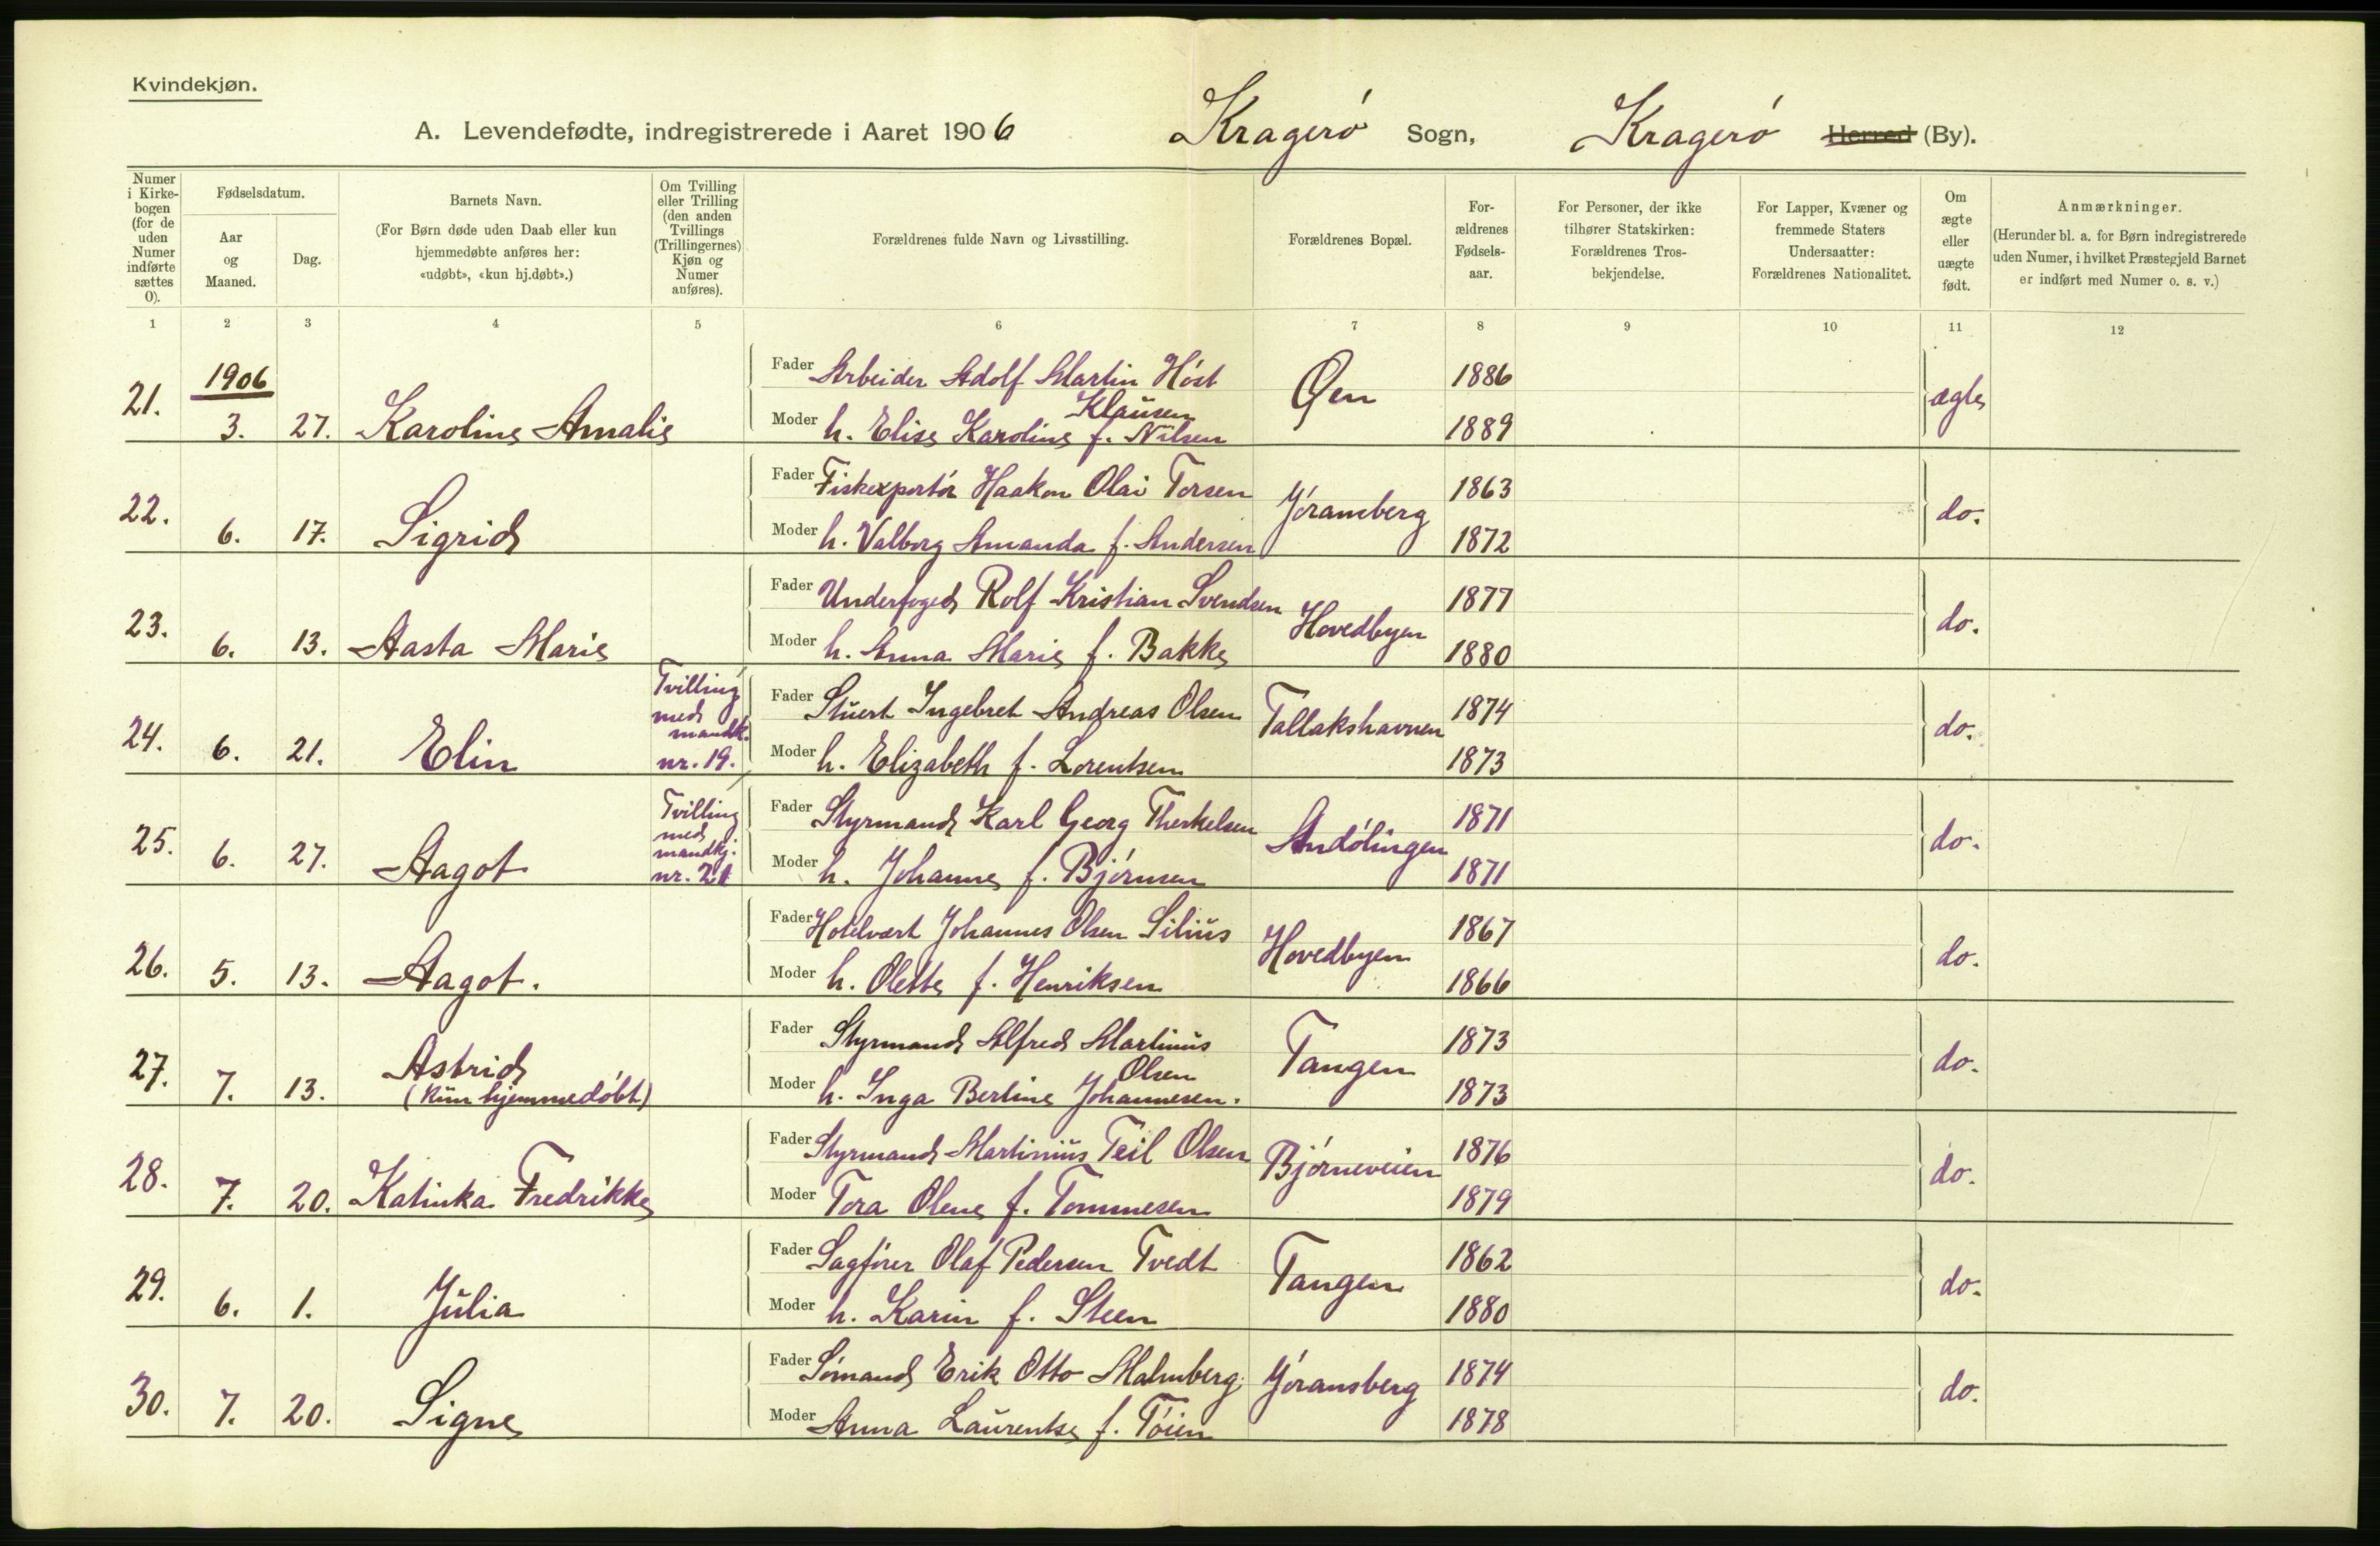 Kvindekjøn.
A. Levendefødte, indregistrerede i Aaret 1906 Kragerö Sogn, Kragerö Herred (By).
Numer i Kirkebogen (for de uden Numer indførte sættes 0).
Fødselsdatum.
Aar og Maaned.
Dag.
Barnets Navn.
(For Børn døde uden Daab eller kun hjemmedøbte anføres her: «udøbt», «kun hj.døbt».)
Om Tvilling eller Trilling (den anden Tvillings (Trillingernes) Kjøn og Numer anføres).
Forældrenes fulde Navn og Livsstilling.
Forældrenes Bopæl.
For-ældrenes Fødsels-aar.
For Personer, der ikke tilhører Statskirken: Forældrenes Tros-bekjendelse.
For Lapper, Kvæner og fremmede Staters Undersaatter: Forældrenes Nationalitet.
Om ægte eller uægte født.
Anmærkninger.
(Herunder bl. a. for Børn indregistrerede uden Numer, i hvilket Præstegjeld Barnet er indført med Numer o. s. v.)
1 2 3 4 5 6 7 8 9 10 11 12
1906
21. 3. 27. Karoline Amalie
Fader Arbeider Adolf Martin Höst Øen 1886 ægte
Klausen
Moder h. Elise Karoline f. Nilsen 1889
22. 6. 17. Sigrid
Fader Fiskexportör Haakon Olai Torsen Jöramberg 1863 do.
Moder h. Valborg Amanda f. Andersen 1872
23. 6. 13. Aasta Marie
Fader Underfoged Rolf Kristian Svendsen Hovedbyen 1877 do.
Moder h. Anna Marie f. Bakke 1880
24. 6. 21. Elin
Tvilling med mandk. nr. 19.
Fader Stuert Ingebret Andreas Olsen Tallakshavnen 1874 do.
Moder h. Elizabeth f. Lorentsen 1873
25. 6. 27. Aagot
Tvilling med mandkj. nr. 21
Fader Styrmand Karl Georg Therkelsen Andölingen 1871 do.
Moder h. Johanne f. Björnsen 1871
26. 5. 13. Aagot.
Fader Hotelvært Johannes Olsen Silius Hovedbyen 1867 do.
Moder h. Olette f. Henriksen 1866
27. 7. 13. Astrid
(Kun hjemmedöbt)
Fader Styrmand Alfred Martinius Tangen 1873 do.
Olsen
Moder h. Inga Bertine Johannesen. 1873
28. 7. 20. Katinka Fredrikke
Fader Styrmand Martinius Teil Olsen Björneveien 1876 do.
Moder Tora Olene f. Tommesen 1879
29. 6. 1. Julia
Fader Sagfører Olaf Pedersen Tvedt Tangen 1862 do.
Moder h. Karin f. Steen 1880
30. 7. 20. Signe
Fader Sömand Erik Otto Malmberg Jöransberg 1874 do.
Moder Anna Laurentse f. Töien 1878